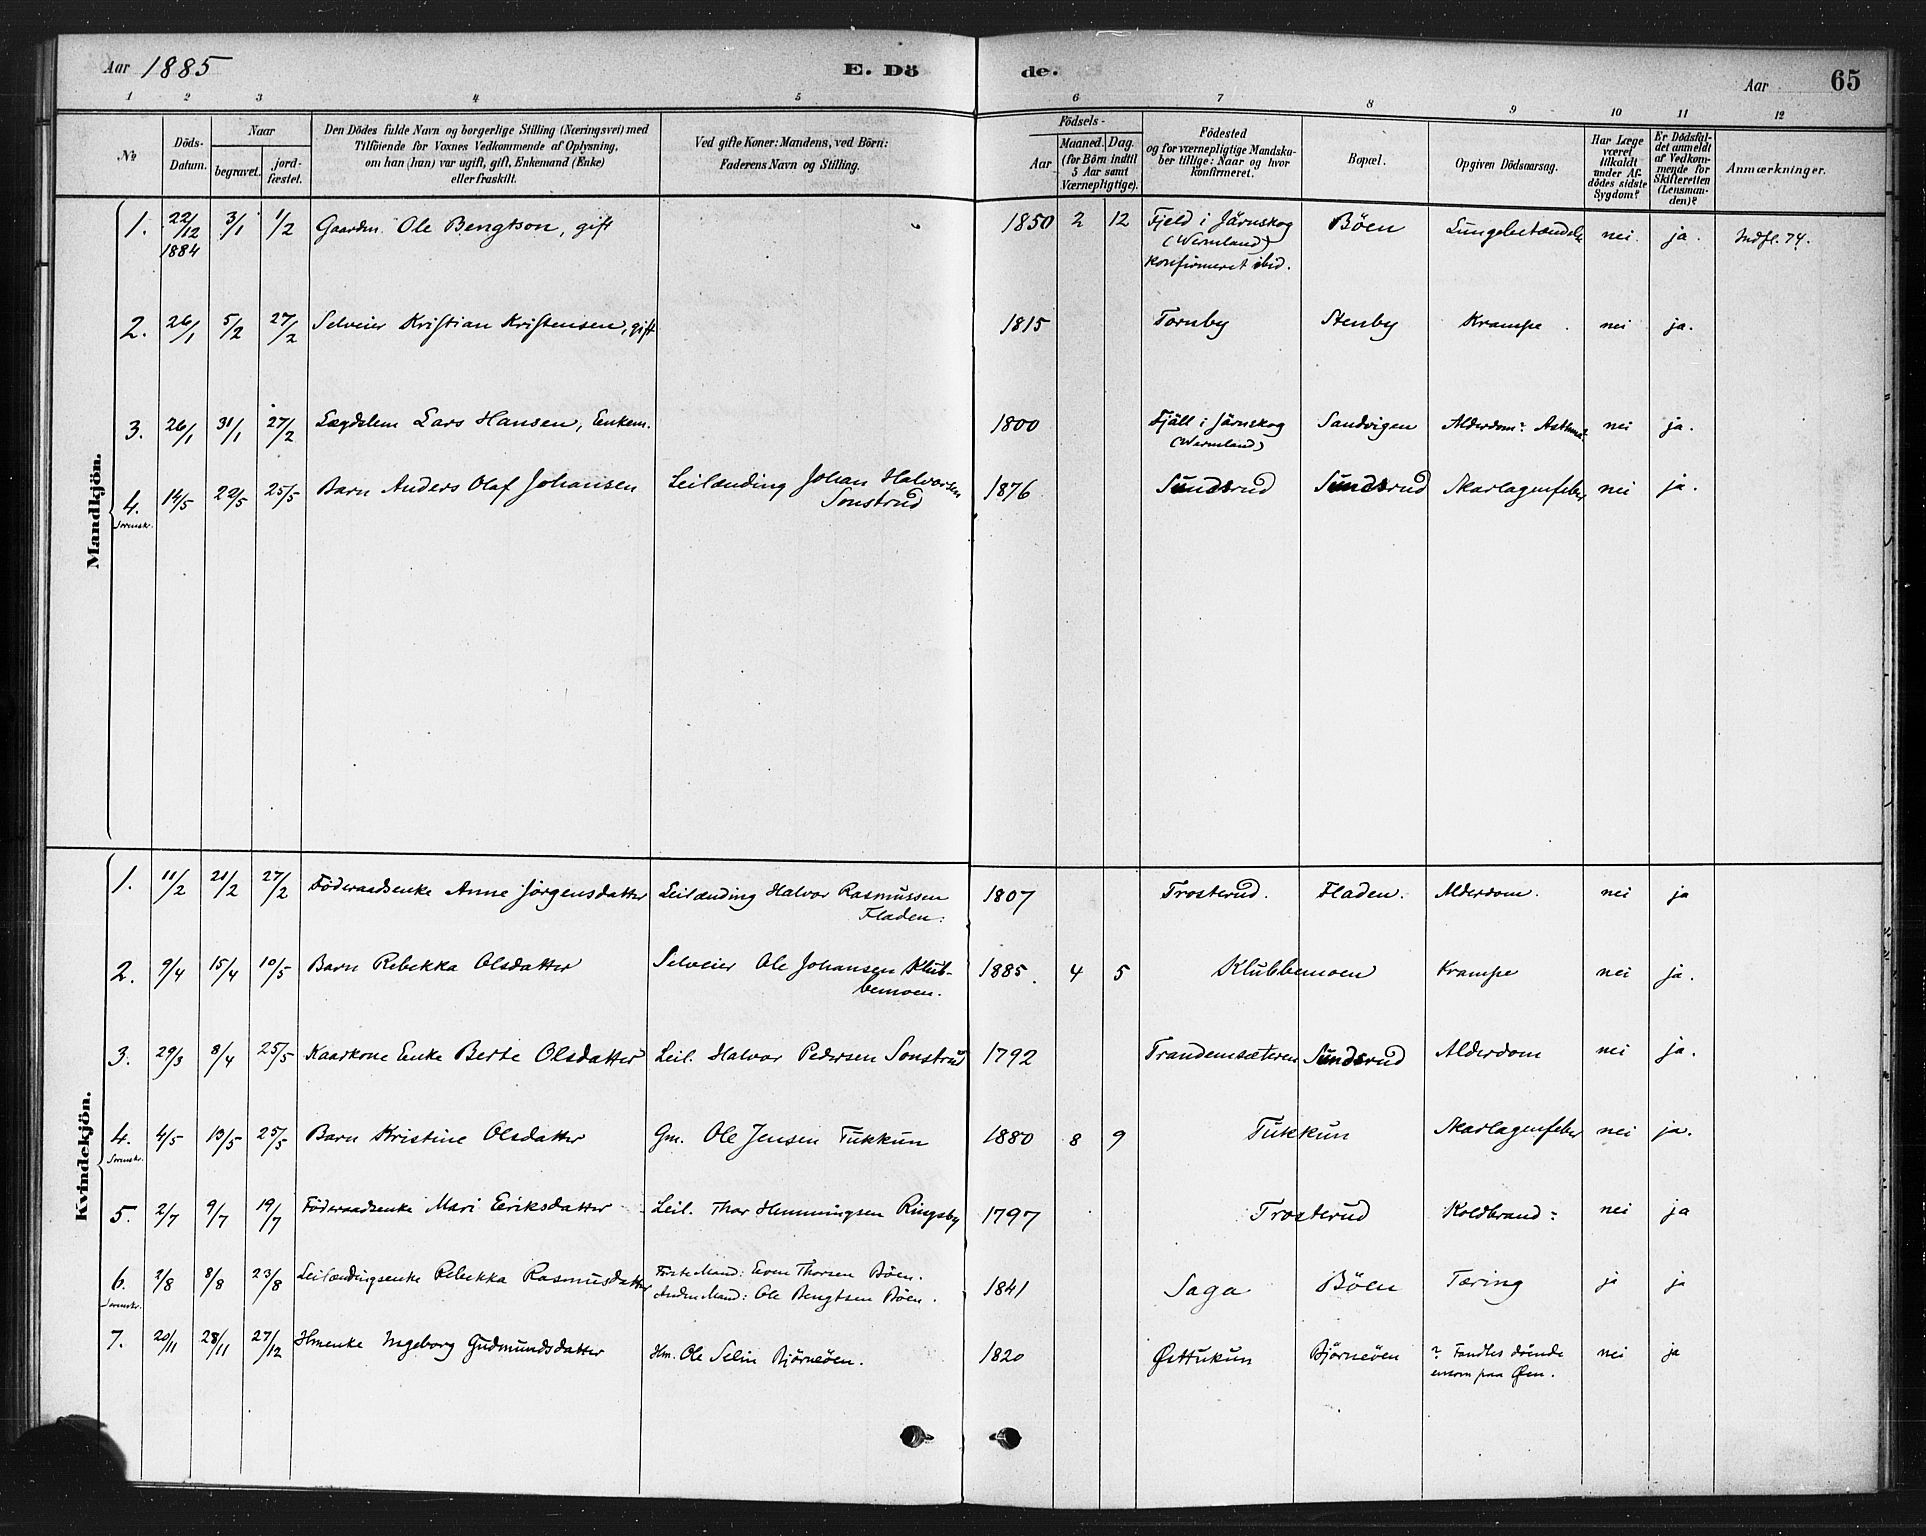 Aar 1885 E. Dö de. Aar 65
1 2 3 4 5 6 7 8 9 10 11 12
№
Döds-
Datum.
Naar
begravet. jord-
fæstet.
Den Dödes fulde Navn og borgerlige Stilling (Næringsvei) med
Tilföiende for Voxnes Vedkommende af Oplysning,
om han (hun) var ugift, gift, Enkemand (Enke)
eller fraskilt.
Ved gifte Koner: Mandens, ved Börn:
Faderens Navn og Stilling.
Födsels-
Aar Maaned. Dag.
(for Börn indtil
5 Aar samt
Værnepligtige).
Födested
og for værnepligtige Mandska-
ber tillige: Naar og hvor
konfirmeret.
Bopæl.
Opgiven Dödsaarsag.
Har Læge
været
tilkaldt
under Af-
dödes sidste
Sygdom?
Er Dödsfal-
det anmeldt
af Vedkom-
mende for
Skifteretten
(Lensman-
den)?
Anmærkninger.
Mandkjön.
1. 22/12 3/1 1/2 Gaardm. Ole Bengtson, gift 1850 2 12 Fjeld i Järnskog Böen Lungebetændelse nei. ja. Indfl. 74.
1884 (Wermland)
Konfirmeret ibid.
2. 26/1 5/2 27/2 Selveier Kristian Kristensen, gift 1815 Tornby Stenby Krampe. nei ja.
3. 26/1 31/1 27/2 Lægdslem Lars Hansen, Enkem. 1800 Fjäll i Järnskog Sandvigen Alderdom: Asthma. nei ja.
(Wermland)
4. 14/5 22/5 25/5 Barn Anders Olaf Johansen Leilænding Johan Halvorsen 1876 Sundsrud Sundsrud Skarlagenfeber nei ja.
Sonstrud
Kvindekjön.
1. 11/2 21/2 27/2 Föderaadsenke Anne Jörgensdatter Leilænding Halvor Rasmussen 1807 Trosterud. Fladen. Alderdom. nei ja
Fladen.
2. 9/4 15/4 10/5 Barn Rebekka Olsdatter Selveier Ole Johansen Klub- 1885. 4 5 Klubbemoen Krampe nei ja.
bemoen.
3. 29/3 8/4 25/5 Kaarkone Enke Berte Olsdatter Leil. Halvor Pedersen Sonstrud 1792 Trandemsæteren Sundsrud Alderdom nei ja.
4. 4/5 13/5 25/5 Barn Kristine Olsdatter Gm. Ole Jensen Tukkun 1880 8 9 Tukkun Skarlagenfeber nei ja.
5. 2/7 9/7 19/7 Föderaadsenke Mari Eriksdatter Leil. Thor Hemmingsen Ringsby 1797 Trosterud Koldbrand: nei ja
6. 2/8 8/8 23/8 Leilændingsenke Rebekka Rasmusdatter Förste Mand: Even Thorsen Böen. 1841 Saga Böen Tæring ja ja
Anden Mand: Ole Bengtsen Böen.
7. 20/11 28/11 27/12 Hmenke Ingeborg Gudmundsdatter Hm. Ole Selin Björneöen. 1820 Østtukun Björneöen ? Fandtes döende nei ja
ensom paa Øen.